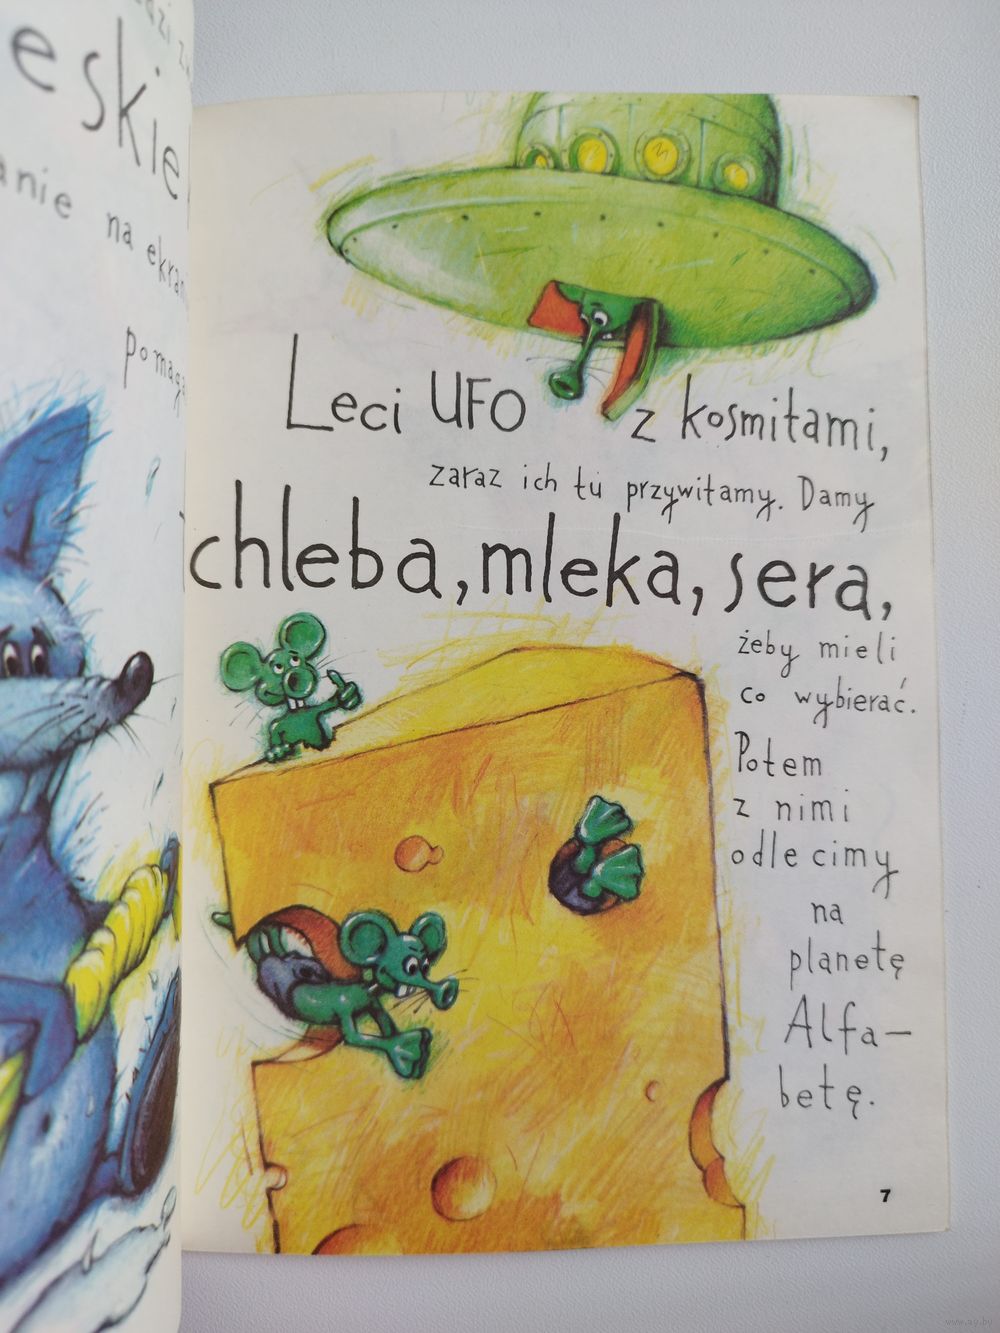 anie na
Leci UFO z kosmitami,
zaraz ich tu przywitamy. Damy
chleba, mleka, sera,
żeby mieli
co wybierać.
Potem
z nimi
odlecimy
na
planetę
Alfa–
betę.
7
www.ay.by